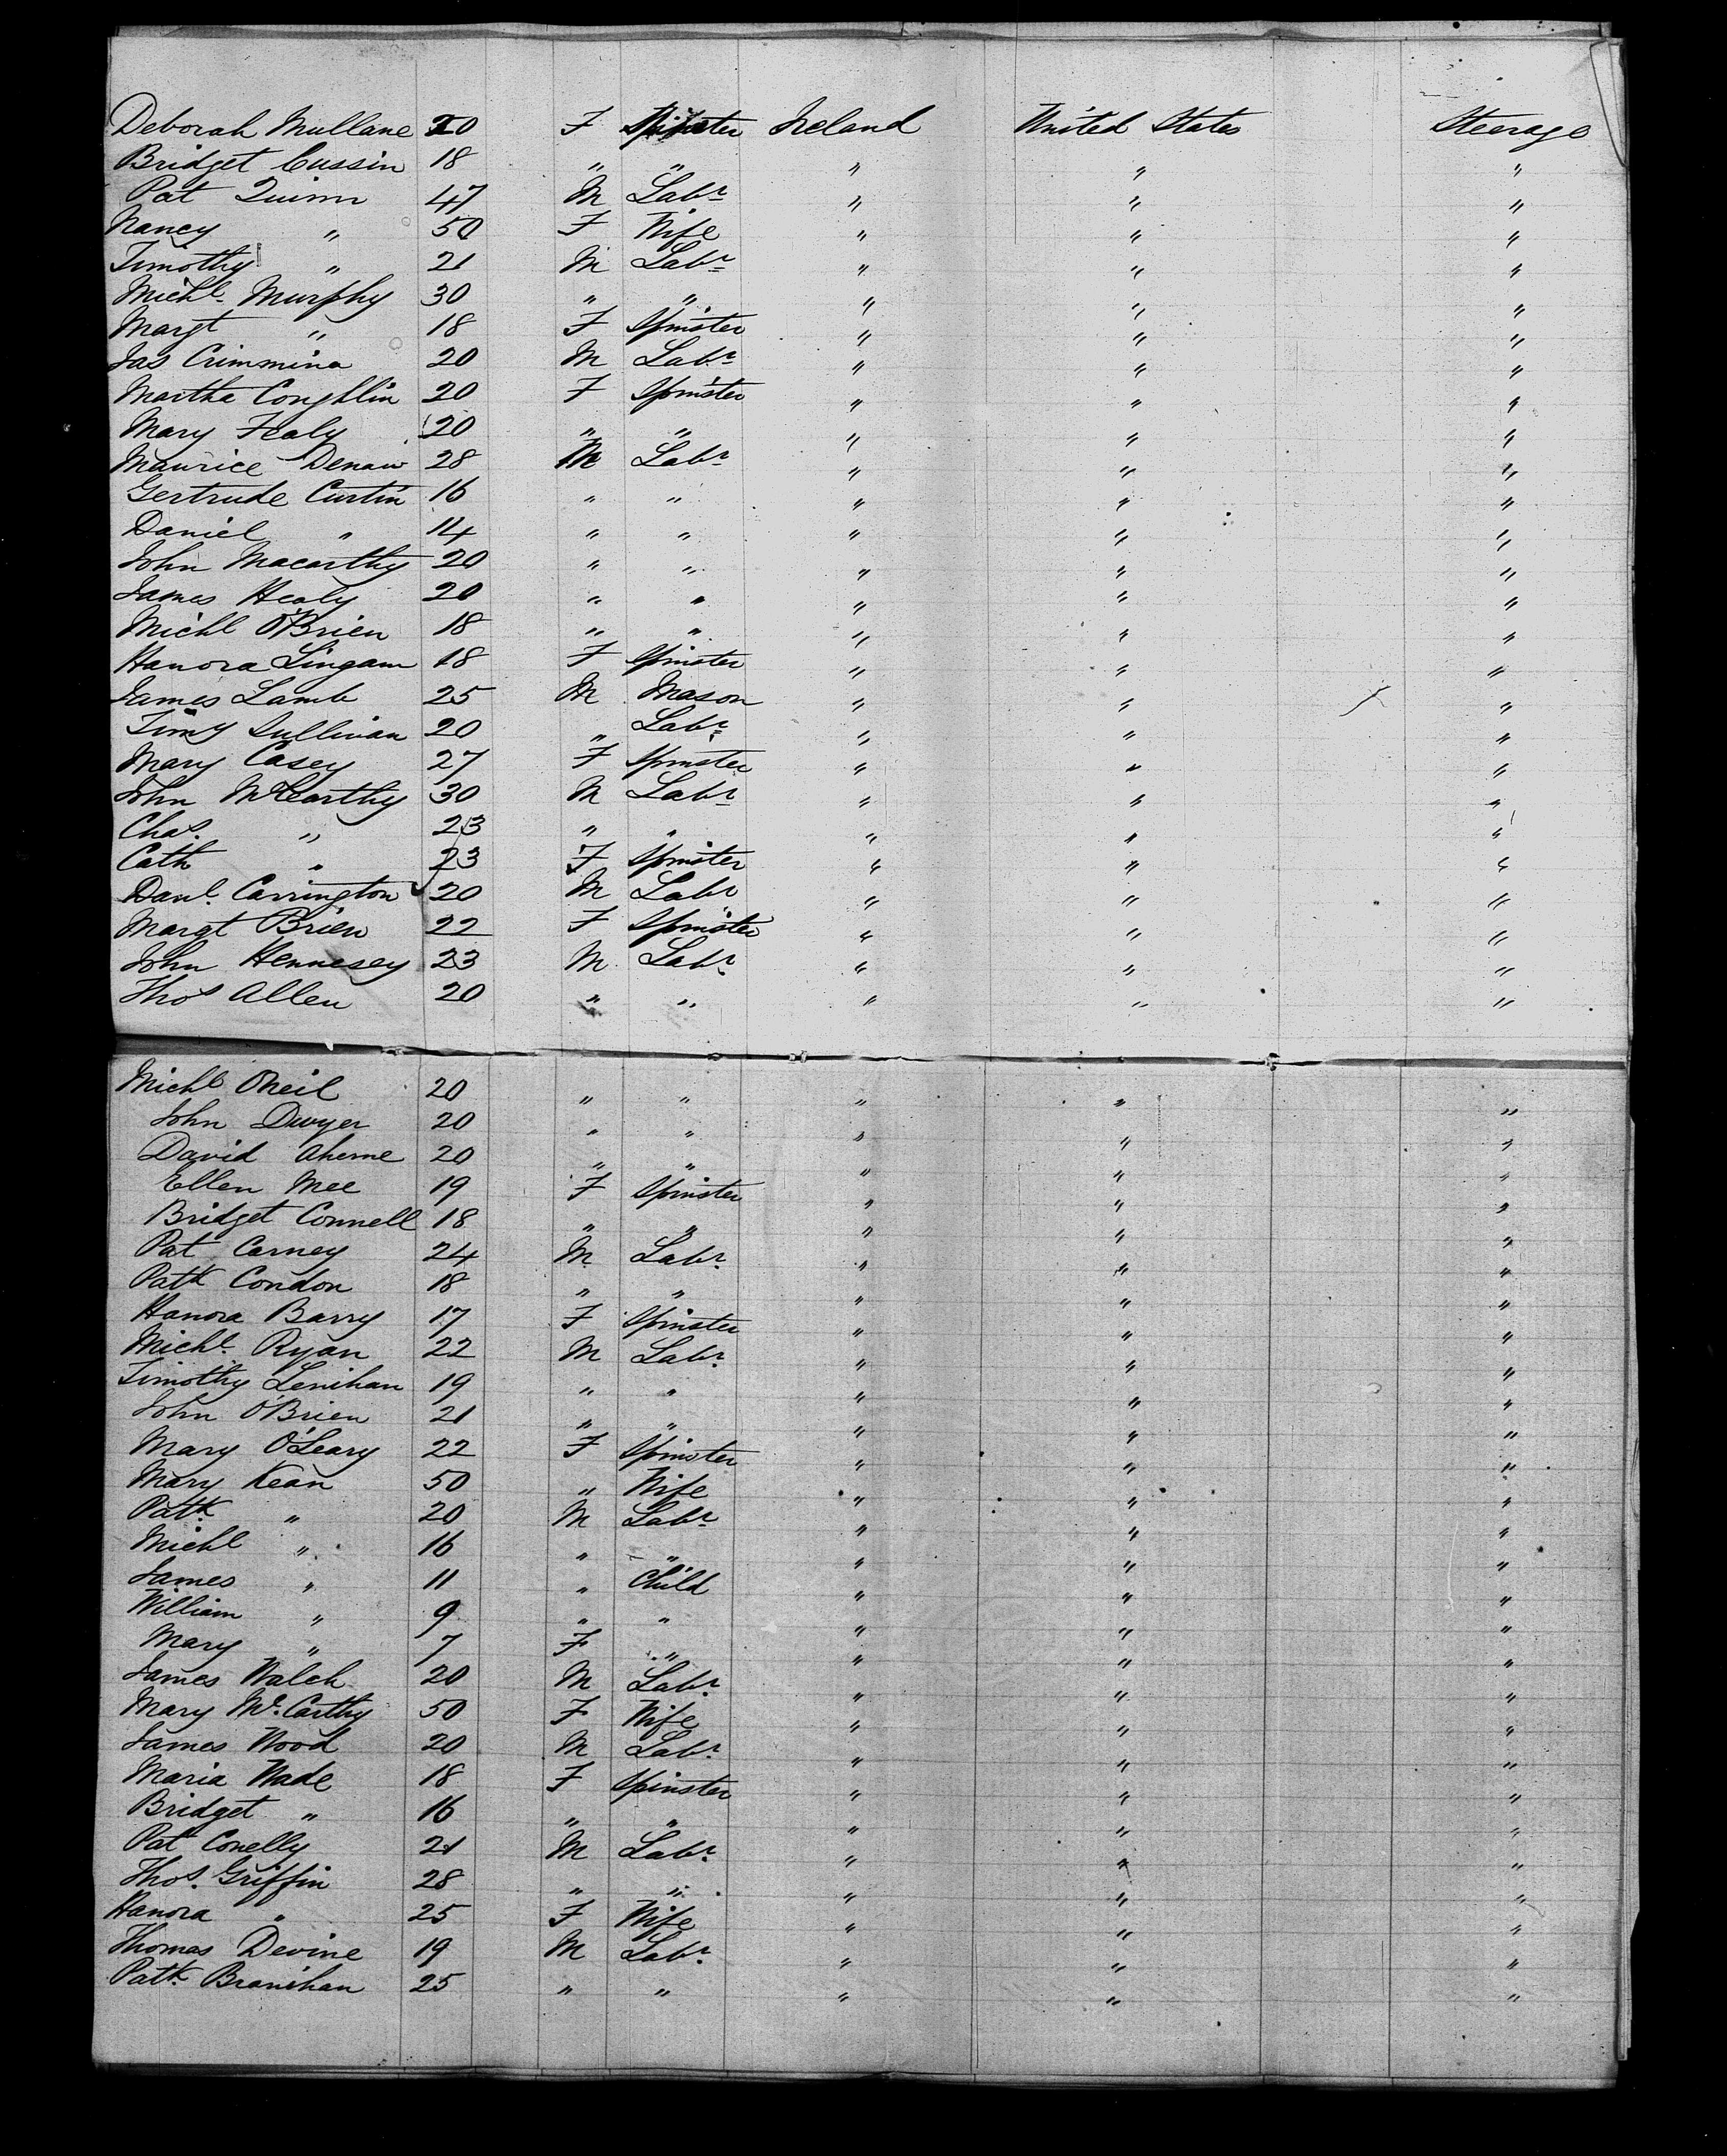 Deborah Mullane 20 F Spinster Ireland United States Steerage
Bridget Cussin 18 " " " " "
Pat Quinn 47 M Labr " " "
Nancy " 50 F Wife " " "
Timothy " 21 M Labr " " "
Michl Murphy 30 " " " " "
Margt " 18 F Spinster " " "
Jas Crimmina 20 M Labr " " "
Martha Coughlin 20 F Spinster " " "
Mary Fealy 20 " " " " "
Maurice 28 M Labr " " "
Gertrude Curtin 16 " " " " "
Daniel " 14 " " " " "
John Macarthy 20 " " " " "
James Healy 20 " " " " "
Michl O'Brien 18 " " " " "
Hanora Lingam 18 F Spinster " " "
James Lamb 25 M Mason " " "
Timy Sullivan 20 " Labr " " "
Mary Casey 27 F Spinster " " "
John McCarthy 30 M Labr " " "
Chas. " 23 " " " " "
Cath " 23 F Spinster " " "
Danl. Carrington 20 M Labr " " "
Margt Brien 22 F Spinster " " "
John Hennesey 23 M Labr. " " "
Thos Allen 20 " " " " "
Michl ONeil 20 " " " " "
John Dwyer 20 " " " " "
David Aherne 20 " " " " "
Ellen Mee 19 F Spinster " " "
Bridget Connell 18 " " " " "
Pat Carney 24 M Labr. " " "
Patk Condon 18 " " " " "
Hanora Barry 17 F Spinster " " "
Michl. Ryan 22 M Labr. " " "
Timothy Lenihan 19 " " " " "
John O'Brien 21 " " " " "
Mary O'Leary 22 F Spinster " " "
Mary Kean 50 " Wife " " "
Patk. " 20 M Labr " " "
Michl " 16 " " " " "
James " 11 " Child " " "
William " 9 " " " " "
Mary " 7 F " " " "
James Walch 20 M Labr. " " "
Mary Mc.Carthy 50 F Wife " " "
James Wood 20 M Labr. " " "
Maria Wade 18 F Spinster " " "
Bridget " 16 " " " " "
Pat Conelly 21 M Labr. " " "
Thos. Griffin 28 " " " " "
Hanora " 25 F Wife " " "
Thomas Devine 19 M Labr. " " "
Patk. Branihan 25 " " " " "